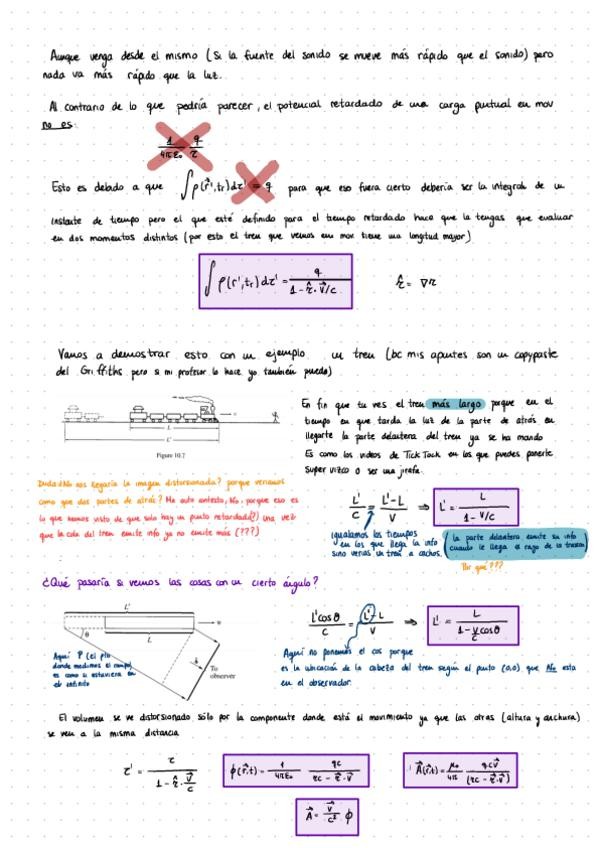 Aunque venga desde el mismo (Si la fuente del sonido se mueve más rápido que el sonido) pero
nada va más rápido que la luz.
Al contrario de lo que podría parecer, el potencial retardado de una carga puntual en mov
no es:
1/4πε₀ q/r
Esto es debido a que ∫ρ(r⃗',tr)dτ' = q para que eso fuera cierto debería ser la integral de un
instante de tiempo pero el que esté definido para el tiempo retardado hace que la tengas que evaluar
en dos momentos distintos (por esto el tren que vemos en mov tiene una longitud mayor)
∫ρ(r',tr)dτ' = q/(1-r̂·v⃗/c) r̂ = ∇r
Vamos a demostrar esto con un ejemplo un tren (bc mis apuntes son un copypaste
del Griffiths pero si mi profesor lo hace yo también puedo)
L
L'
Figure 10.7
En fin que tu ves el tren más largo porque en el
tiempo en que tarda la luz de la parte de atrás en
llegarte la parte delantera del tren ya se ha movido
Es como los videos de Tick Tock en los que puedes ponerte
super vizco o ser una jirafa.
Duda: ¿No nos llegaría la imagen distorsionada? porque veríamos
como que dos partes de atrás? Me auto contesto, No, porque eso es
lo que hemos visto de que solo hay un punto retardado(?) Una vez
que la cola del tren emite info ya no emite más (???)
L'/c = (L'-L)/v ⇒ L' = L/(1-v/c)
igualamos los tiempos
en los que llega la info
sino verías un tren a cachos.
(la parte delantera emite su info
cuando le llega el rayo de la trasera)
Por qué???
¿Qué pasaría si vemos las cosas con un cierto ángulo?
L'
L
v
θ
To
observer
Aquí P (el pto
donde medimos el campo)
es como si estuviera en
el infinito
L'cosθ/c = (L'-L)/v ⇒ L' = L/(1-v/c cosθ)
Aquí no ponemos el cos porque
es la ubicación de la cabeza del tren según el punto (0,0) que No esta
en el observador.
El volumen se ve distorsionado sólo por la componente donde está el movimiento ya que las otras (altura y anchura)
se ven a la misma distancia
τ' = τ/(1-r̂·v⃗/c) ϕ(r⃗,t) = 1/4πε₀ qc/(rc-r⃗·v⃗) A⃗(r⃗,t) = μ₀/4π qcv⃗/(rc-r⃗·v⃗)
A⃗ = v⃗/c² ϕ